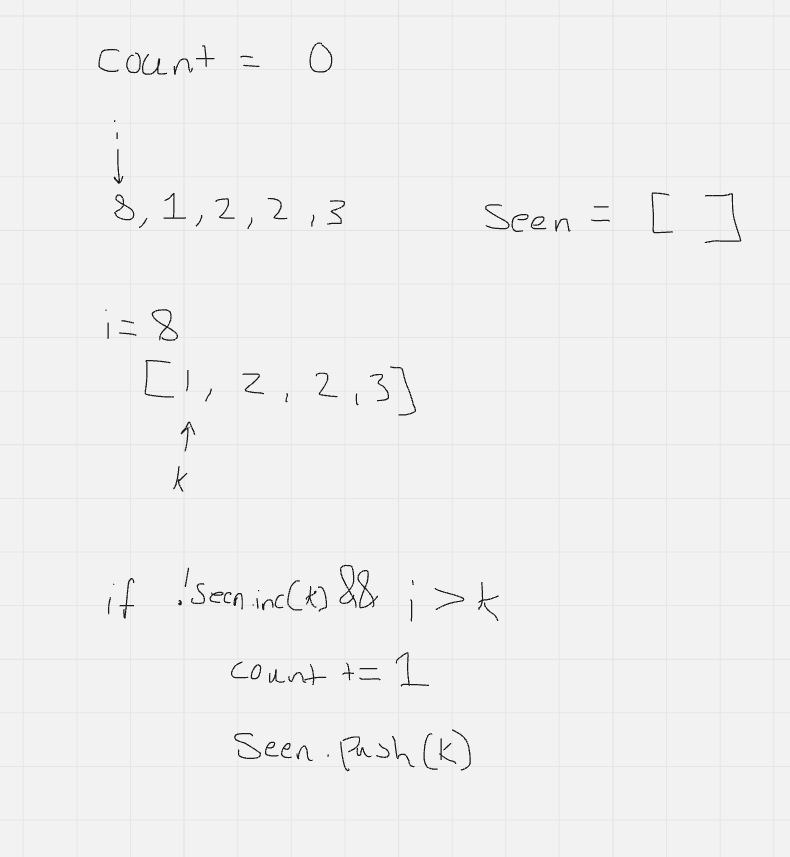 count = 0
i
↓
8, 1, 2, 2, 3
Seen = [ ]
i = 8
[1, 2, 2, 3]
↑
k
if !seen.inc(k) && i > k
count += 1
Seen.push(k)